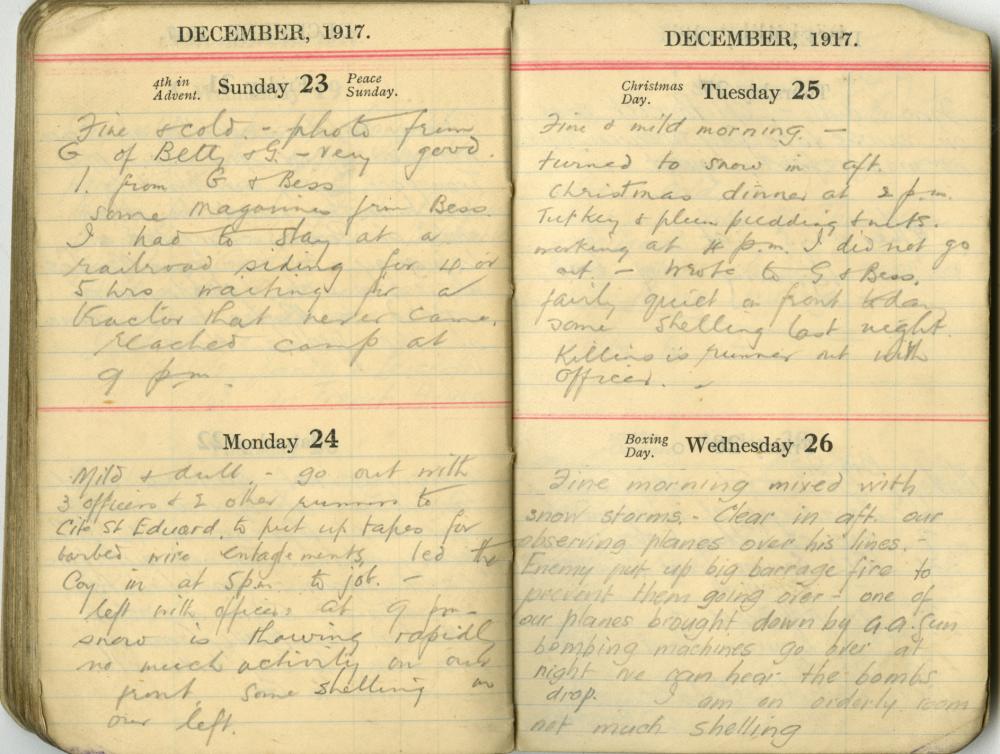 DECEMBER, 1917.
4th in Advent. Sunday 23 Peace Sunday.
Fine & cold. - photo from
G of Betty & G. - very good.
1. from G & Bess
some magazines from Bess.
I had to stay at a
railroad siding for 4 or
5 hrs waiting for a
tractor that never came.
reached camp at
9 pm.
Monday 24
Mild & dull. - go out with
3 officers & 2 other runners to
Cite St Edward. to put up tapes for
barbed wire entaglements, led the
Coy in at 5pm to job. -
left with officers at 9 pm -
snow is thawing rapidly
no much activity on our
front. Some shelling on
our left.
DECEMBER, 1917.
Christmas Day. Tuesday 25
Fine & mild morning. -
turned to snow in aft.
Christmas dinner at 2 p.m.
Turkey & plum pudding & nuts.
working at 4 p.m. I did not go
out - Wrote to G & Bess.
fairly quiet on front today
some shelling last night.
Killins is runner out with
officer. -
Boxing Day. Wednesday 26
Fine morning mixed with
snow storms. - Clear in aft. our
observing planes over his lines. -
Enemy put up big barrage fire to
prevent them going over - one of
our planes brought down by a.a. Gun
bombing machines go over at
night we can hear the bombs
drop. I am on orderly room
not much shelling